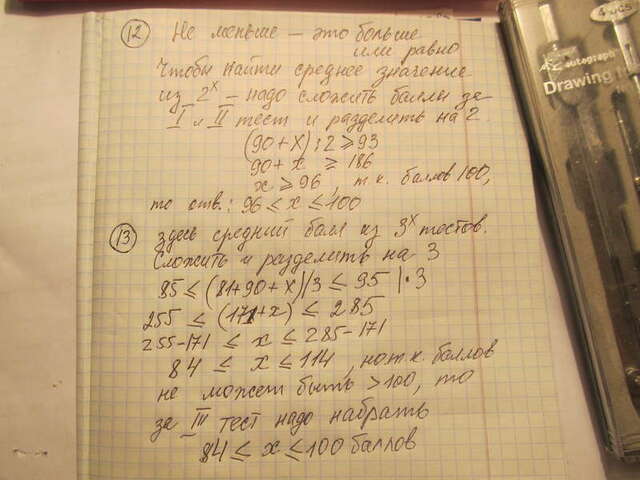 12 Не меньше – это больше
или равно
Чтобы найти среднее значение
из 2х – надо сложить баллы за
I и II тест и разделить на 2.
(90+x):2 ≥ 93
90+x ≥ 186
x ≥ 96, т.к. баллов 100,
то отв.: 96 ≤ x ≤ 100
13 здесь средний балл из 3х тестов.
Сложить и разделить на 3
85 ≤ (81+90+x)/3 ≤ 95 |·3
255 ≤ (171+x) ≤ 285
255-171 ≤ x ≤ 285-171
84 ≤ x ≤ 114, но т.к. баллов
не может быть >100, то
за III тест надо набрать
84 ≤ x ≤ 100 баллов
autograph
Drawing